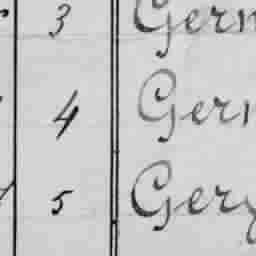 3 Germ
4 Gern
5 Gery